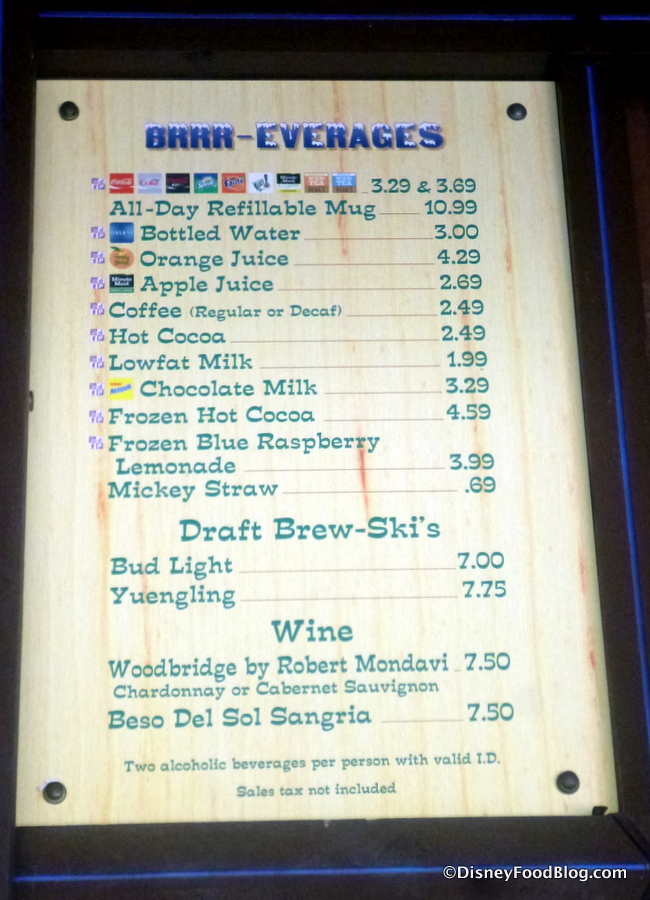 BRRR-EVERAGES
Coca-Cola Sprite Fanta Minute Maid ICED TEA ICED TEA 3.29 & 3.69
All-Day Refillable Mug 10.99
Bottled Water 3.00
Orange Juice 4.29
Minute Maid Apple Juice 2.69
Coffee (Regular or Decaf) 2.49
Hot Cocoa 2.49
Lowfat Milk 1.99
Chocolate Milk 3.29
Frozen Hot Cocoa 4.59
Frozen Blue Raspberry
Lemonade 3.99
Mickey Straw .69
Draft Brew-Ski's
Bud Light 7.00
Yuengling 7.75
Wine
Woodbridge by Robert Mondavi 7.50
Chardonnay or Cabernet Sauvignon
Beso Del Sol Sangria 7.50
Two alcoholic beverages per person with valid I.D.
Sales tax not included
©DisneyFoodBlog.com